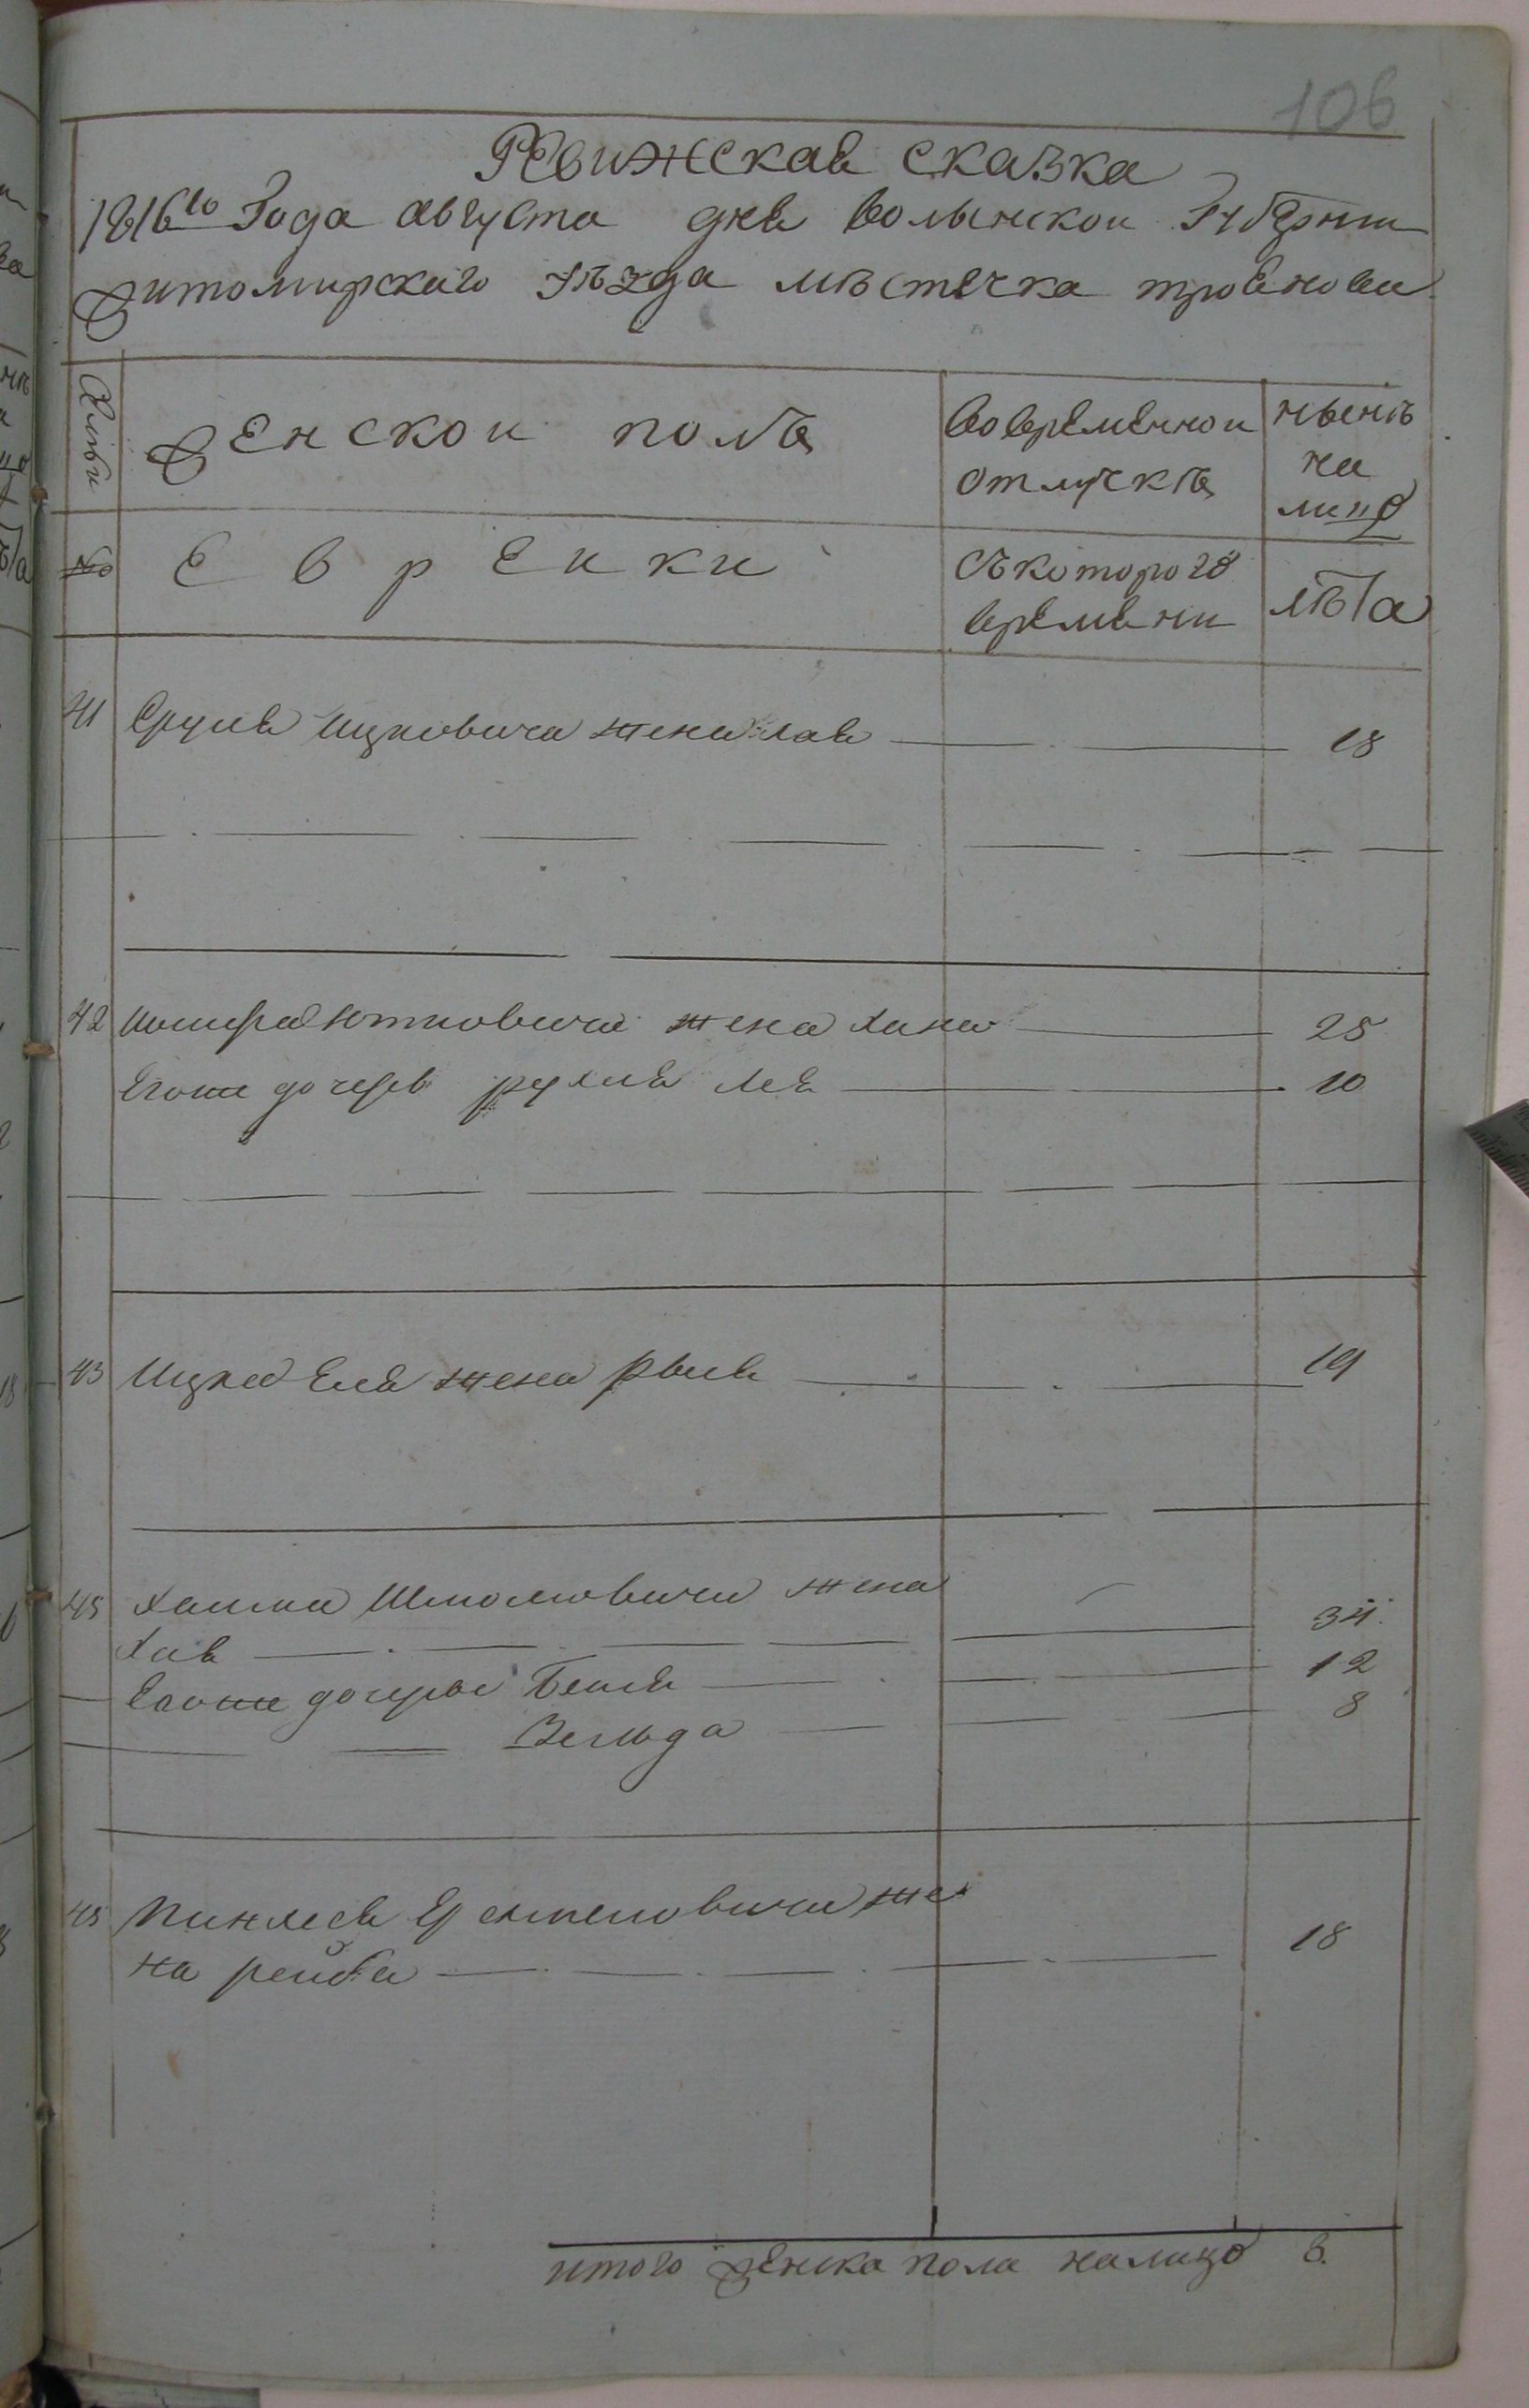 106
Ревижская сказка
1816го Года августа дня волынской Губернии
житомирского уѣзда мѣстечка троянова
Женскои полъ
во временнои отлучкѣ
нынѣ на лицо
№
Евреики
съ котораго времени
лѣта
41 Сруля Ицковича жена хая 18
42 жена хана 25
Егоже дочерь рухля лея 10
43 Ицка Еля жена рыся 19
45 Хаима Шмоловича жена
хая 34
Егоже дочеры Бейля 12
Зельда 8
45 Пинхаса же
на рейза 18
итого женска пола налицо 8.